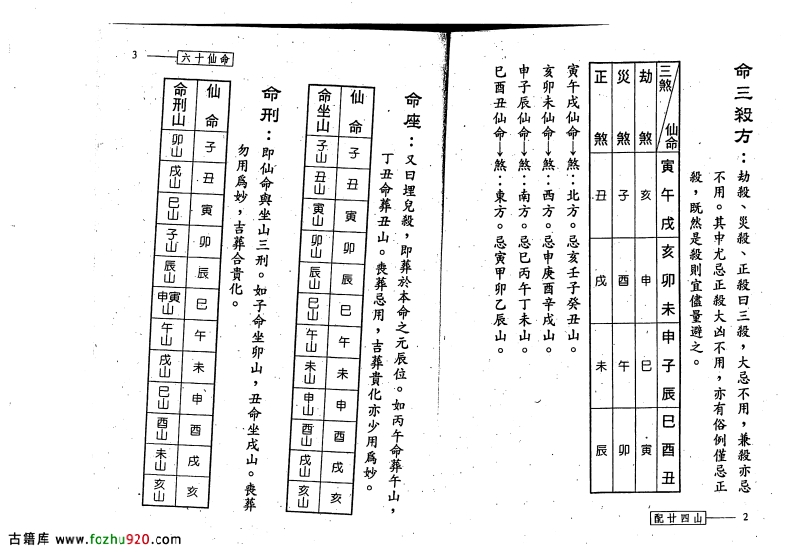 命三殺方：劫殺、災殺、正殺曰三殺，大忌不用，兼殺亦忌
不用。其中尤忌正殺大凶不用，亦有俗例僅忌正
殺，既然是殺則宜儘量避之。
三煞 仙命 寅午戌 亥卯未 申子辰 巳酉丑
劫煞 亥 申 巳 寅
災煞 子 酉 午 卯
正煞 丑 戌 未 辰
寅午戌仙命→煞：北方。忌亥壬子癸丑山。
亥卯未仙命→煞：西方。忌申庚酉辛戌山。
申子辰仙命→煞：南方。忌巳丙午丁未山。
巳酉丑仙命→煞：東方。忌寅甲卯乙辰山。
配廿四山 2
六十仙命 3
命座：又曰埋兒殺，即葬於本命之元辰位。如丙午命葬午山，
丁丑命葬丑山。喪葬忌用，吉葬貴化亦少用爲妙。
仙命 子 丑 寅 卯 辰 巳 午 未 申 酉 戌 亥
命坐山 子山 丑山 寅山 卯山 辰山 巳山 午山 未山 申山 酉山 戌山 亥山
命刑：即仙命與坐山三刑。如子命坐卯山，丑命坐戌山。喪葬
勿用爲妙，吉葬合貴化。
仙命 子 丑 寅 卯 辰 巳 午 未 申 酉 戌 亥
命刑山 卯山 戌山 巳山 子山 辰山 申寅山 午山 戌山 巳山 酉山 未山 亥山
古籍库 www.fozhu920.com